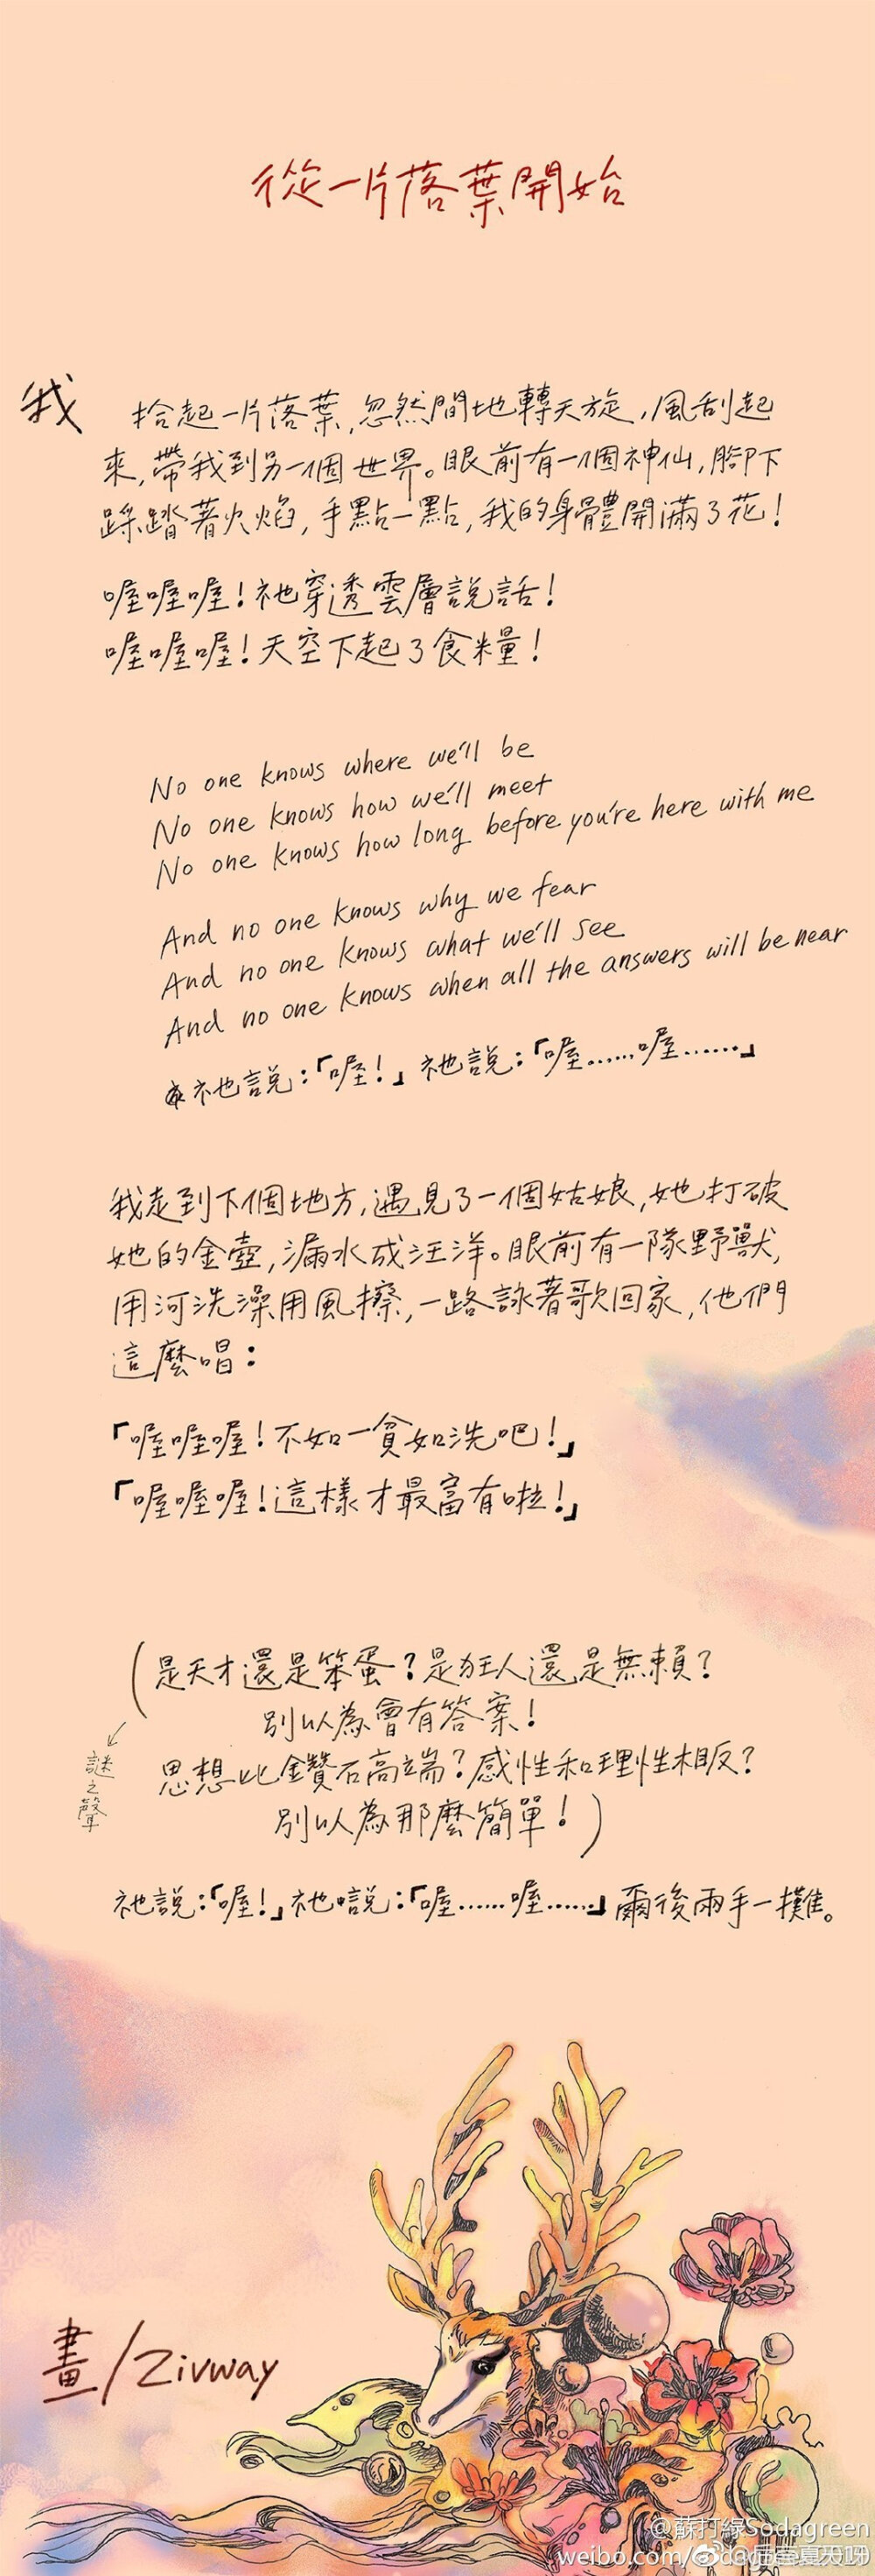 從一片落葉開始
我 拾起一片落葉,忽然間地轉天旋,風刮起
來,帶我到另一個世界。眼前有一個神仙,腳下
踩踏著火焰,手點一點,我的身體開滿了花!
喔喔喔!祂穿透雲層說話!
喔喔喔!天空下起了食糧!
No one knows where we'll be
No one knows how we'll meet
No one knows how long before you're here with me
And no one knows why we fear
And no one knows what we'll see
And no one knows when all the answers will be near
祂說:「喔!」祂說:「喔……喔……」
我走到下個地方,遇見了一個姑娘,她打破
她的金壺,漏水成汪洋。眼前有一隊野獸,
用河洗澡用風擦,一路詠著歌回家,他們
這麼唱:
「喔喔喔!不如一貧如洗吧!」
「喔喔喔!這樣才最富有啦!」
(是天才還是笨蛋?是狂人還是無賴?
別以為會有答案!
思想比鑽石高端?感性和理性相販?
別以為那麼簡單!)
謎之聲
祂說:「喔!」祂說:「喔……喔……」爾後兩手一攤。
畫/Zivway
@蘇打綠Sodagreen
weibo.com/